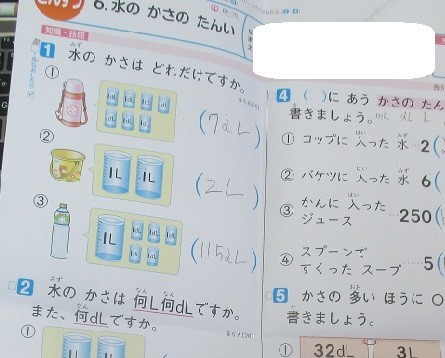 6.水の かさの たんい
知識・技能
1 水の かさは どれだけですか。
①
1dL 1dL 1dL 1dL
1dL 1dL 1dL
(7dL)
②
1L 1L
(2L)
③
1L
1dL 1dL
1dL 1dL 1dL
(115dL)
2 水の かさは 何L何dLですか。
また、何dLですか。
①
4 ( )に あう かさの たん
書きましょう。 mL dL L
① コップに 入った 水 2(
② バケツに 入った 水 6(
③ かんに 入った
ジュース 250(
④ スプーンで
すくった スープ 5(
5 かさの 多い ほうに ○
書きましょう。
① 32dL 3L